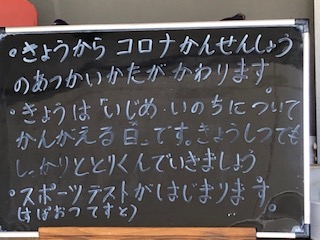 ・きょうから コロナかんせんしょう
のあつかいかたがかわります。
・きょうは「いじめ・いのちについて
かんがえる日」です。きょうしつでも
しっかりととりくんでいきましょう
・スポーツテストがはじまります。
(すぽおつてすと)